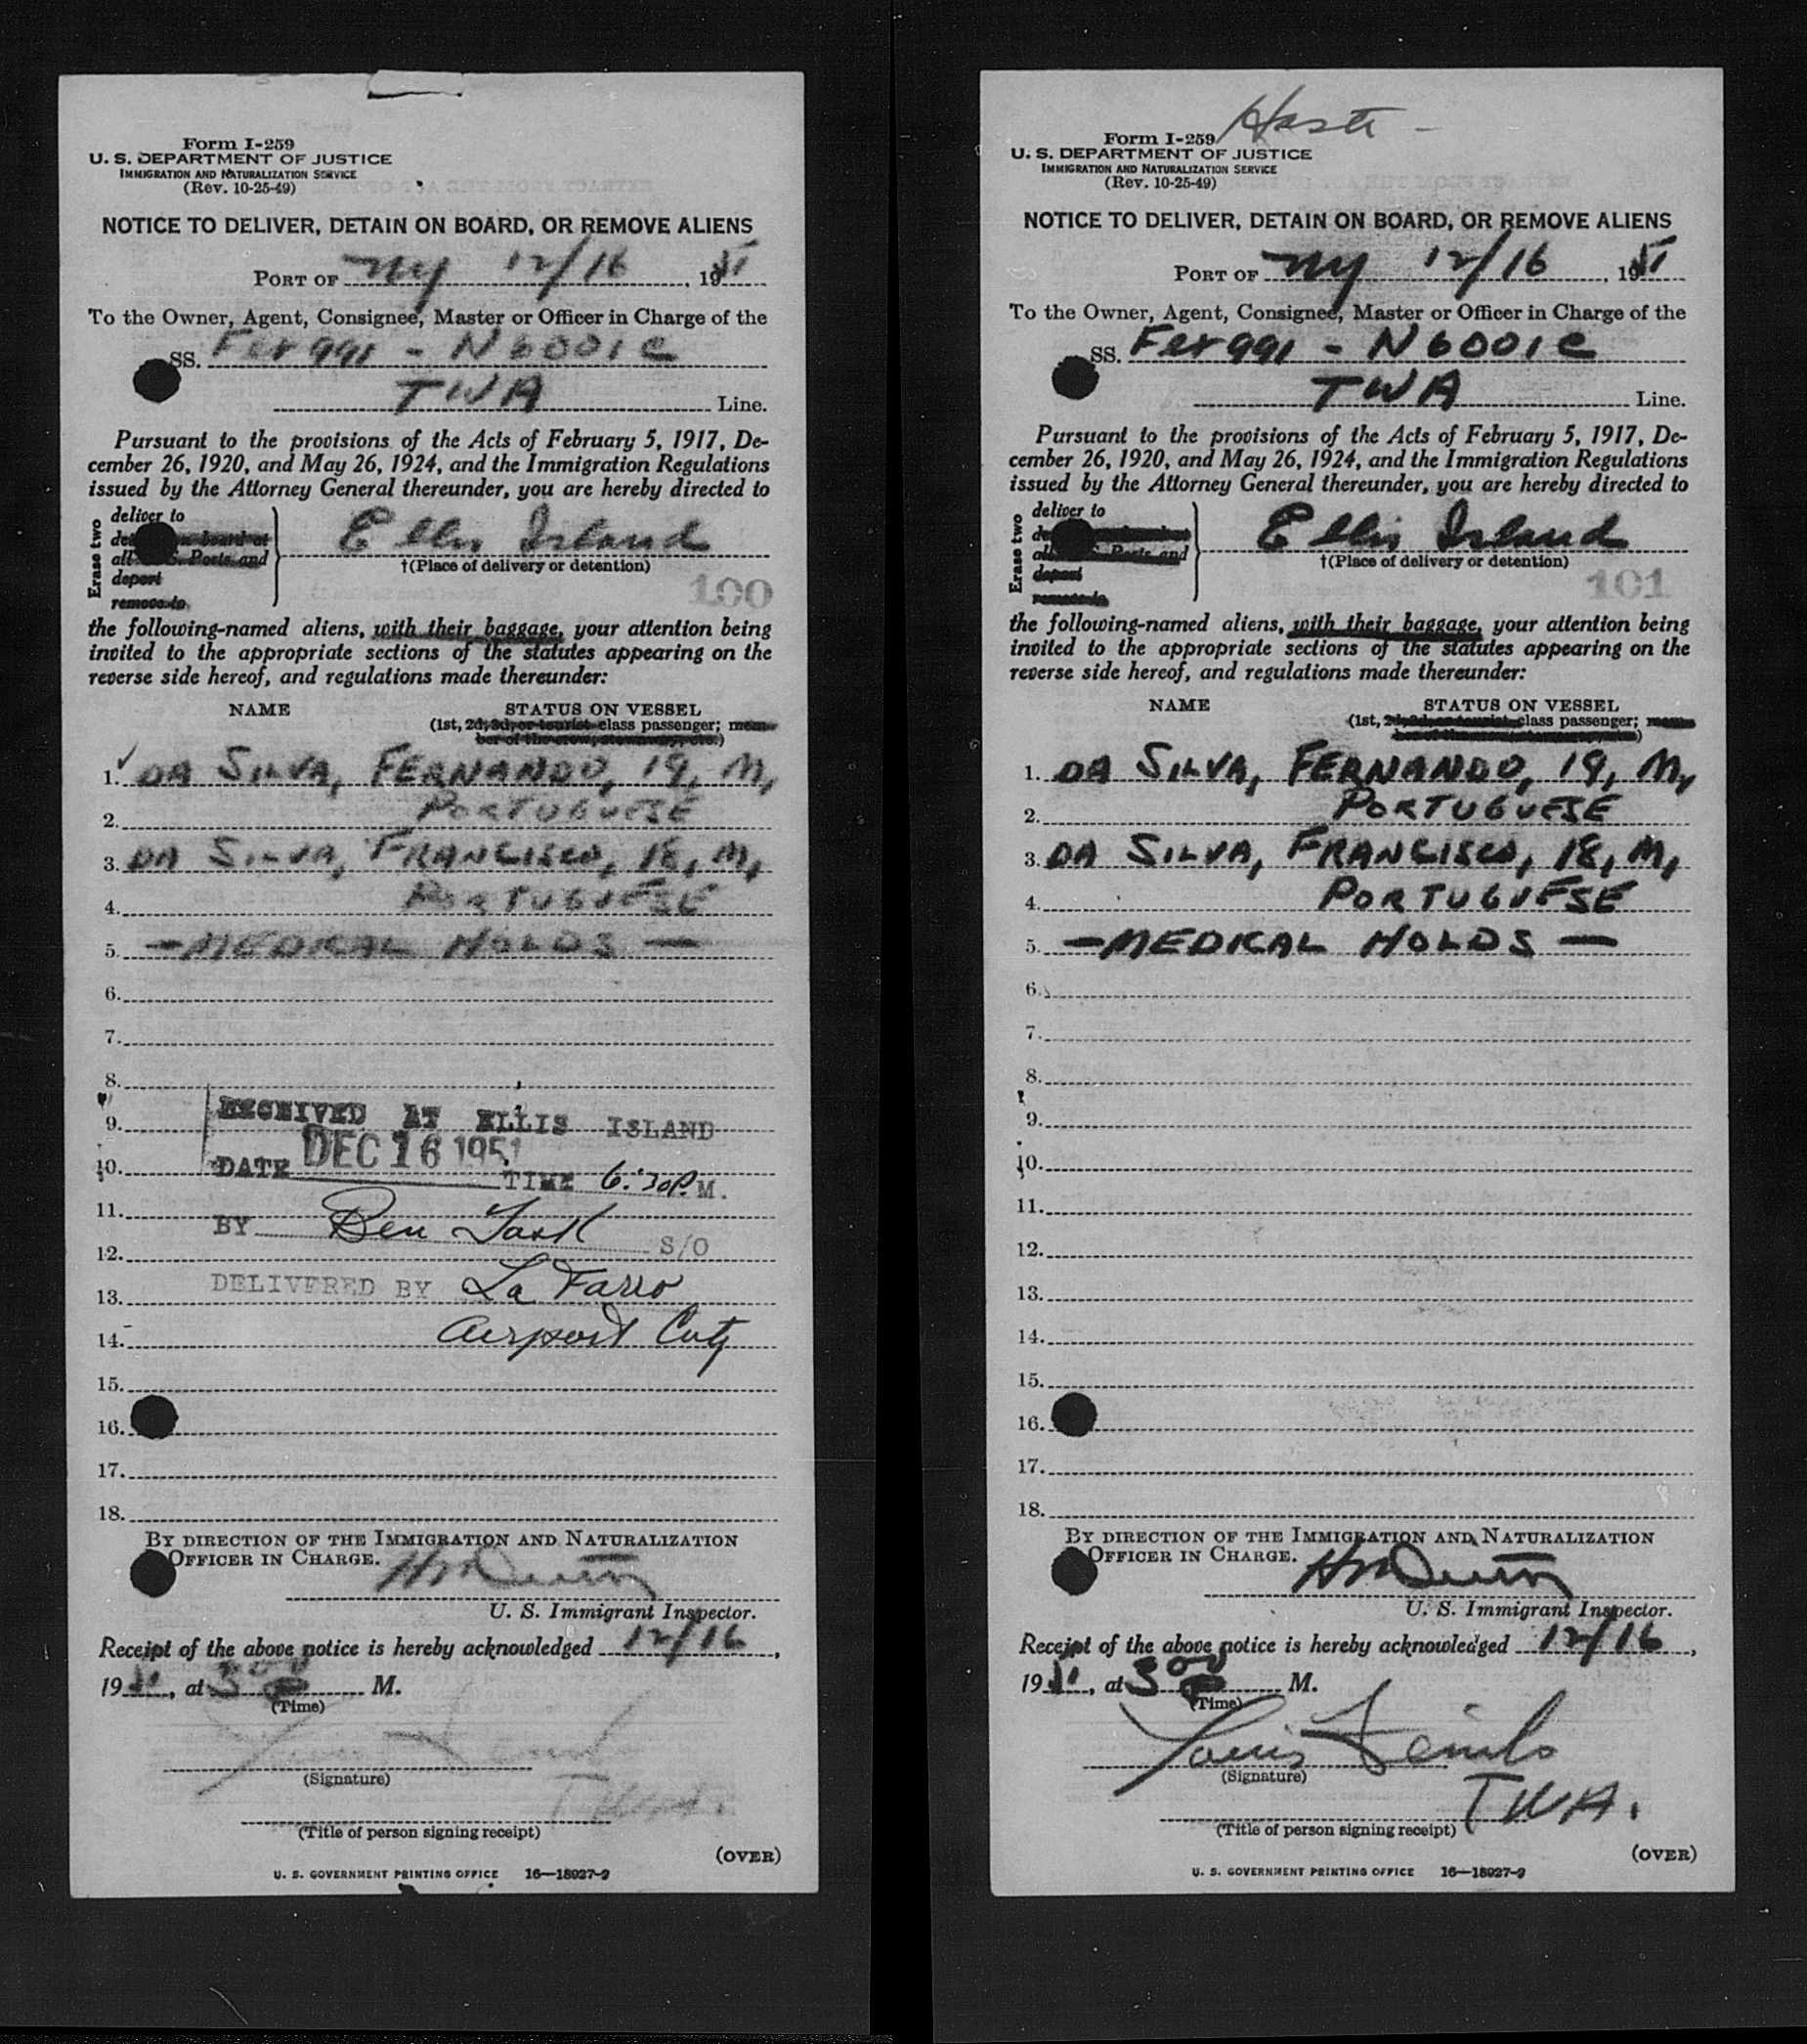 Form I-259
U. S. DEPARTMENT OF JUSTICE
IMMIGRATION AND NATURALIZATION SERVICE
(Rev. 10-25-49)
NOTICE TO DELIVER, DETAIN ON BOARD, OR REMOVE ALIENS
PORT OF NY 12/16, 1951
To the Owner, Agent, Consignee, Master or Officer in Charge of the
SS. Fer 991 - N6001C
TWA Line.
Pursuant to the provisions of the Acts of February 5, 1917, De-
cember 26, 1920, and May 26, 1924, and the Immigration Regulations
issued by the Attorney General thereunder, you are hereby directed to
Erase two
deliver to
on board at
all Ports and
deport
remove to
Ellis Island
†(Place of delivery or detention)
100
the following-named aliens, with their baggage, your attention being
invited to the appropriate sections of the statutes appearing on the
reverse side hereof, and regulations made thereunder:
NAME STATUS ON VESSEL
(1st, 2d, 3d, or tourist class passenger; mem-
ber of the crew, stowaway, etc.)
1. DA SILVA, FERNANDO, 19, M,
2. PORTUGUESE
3. DA SILVA, FRANCISCO, 18, M,
4. PORTUGUESE
5. — MEDICAL HOLDS —
6.
7.
8.
9. RECEIVED AT ELLIS ISLAND
10. DATE DEC 16 1951 TIME 6:30 P.M.
11.
BY Ben Task S/O
12.
13. DELIVERED BY La Farro
14. Airport Cuty
15.
16.
17.
18.
BY DIRECTION OF THE IMMIGRATION AND NATURALIZATION
OFFICER IN CHARGE.
U. S. Immigrant Inspector.
Receipt of the above notice is hereby acknowledged 12/16,
1951, at 3 00 P M.
(Time)
Louis
(Signature)
TWA.
(Title of person signing receipt)
(OVER)
U. S. GOVERNMENT PRINTING OFFICE 16—18927-2
Form I-259
U. S. DEPARTMENT OF JUSTICE
IMMIGRATION AND NATURALIZATION SERVICE
(Rev. 10-25-49)
NOTICE TO DELIVER, DETAIN ON BOARD, OR REMOVE ALIENS
PORT OF NY 12/16, 1951
To the Owner, Agent, Consignee, Master or Officer in Charge of the
SS. Fer 991 - N6001C
TWA Line.
Pursuant to the provisions of the Acts of February 5, 1917, De-
cember 26, 1920, and May 26, 1924, and the Immigration Regulations
issued by the Attorney General thereunder, you are hereby directed to
Erase two
deliver to
all Ports and
deport
remove to
Ellis Island
†(Place of delivery or detention)
101
the following-named aliens, with their baggage, your attention being
invited to the appropriate sections of the statutes appearing on the
reverse side hereof, and regulations made thereunder:
NAME STATUS ON VESSEL
(1st, 2d, 3d, or tourist class passenger; mem-
ber of the crew, stowaway, etc.)
1. DA SILVA, FERNANDO, 19, M,
2. PORTUGUESE
3. DA SILVA, FRANCISCO, 18, M,
4. PORTUGUESE
5. — MEDICAL HOLDS —
6.
7.
8.
9.
10.
11.
12.
13.
14.
15.
16.
17.
18.
BY DIRECTION OF THE IMMIGRATION AND NATURALIZATION
OFFICER IN CHARGE.
U. S. Immigrant Inspector.
Receipt of the above notice is hereby acknowledged 12/16,
1951, at 3 00 P M.
(Time)
Louis
(Signature)
TWA.
(Title of person signing receipt)
(OVER)
U. S. GOVERNMENT PRINTING OFFICE 16—18927-2